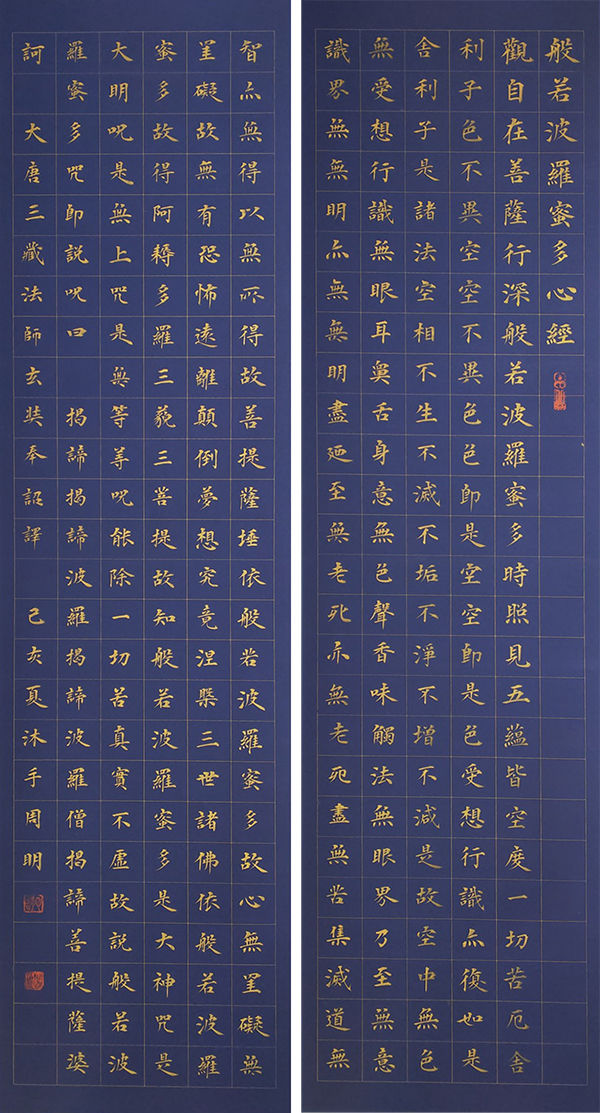 般若波羅蜜多心經
觀自在菩薩行深般若波羅蜜多時照見五蘊皆空度一切苦厄舍
利子色不異空空不異色色即是空空即是色受想行識亦復如是
舍利子是諸法空相不生不滅不垢不淨不增不減是故空中無色
無受想行識無眼耳鼻舌身意無色聲香味觸法無眼界乃至無意
識界無無明亦無無明盡廼至無老死亦無老死盡無苦集滅道無
智亦無得以無所得故菩提薩埵依般若波羅蜜多故心無罣礙無
罣礙故無有恐怖遠離顛倒夢想究竟涅槃三世諸佛依般若波羅
蜜多故得阿耨多羅三藐三菩提故知般若波羅蜜多是大神咒是
大明呪是無上咒是無等等呪能除一切苦真實不虛故說般若波
羅蜜多咒即說呪曰 揭諦揭諦波羅揭諦波羅僧揭諦菩提薩婆
訶 大唐三藏法師玄奘奉詔譯 己亥夏沐手周明